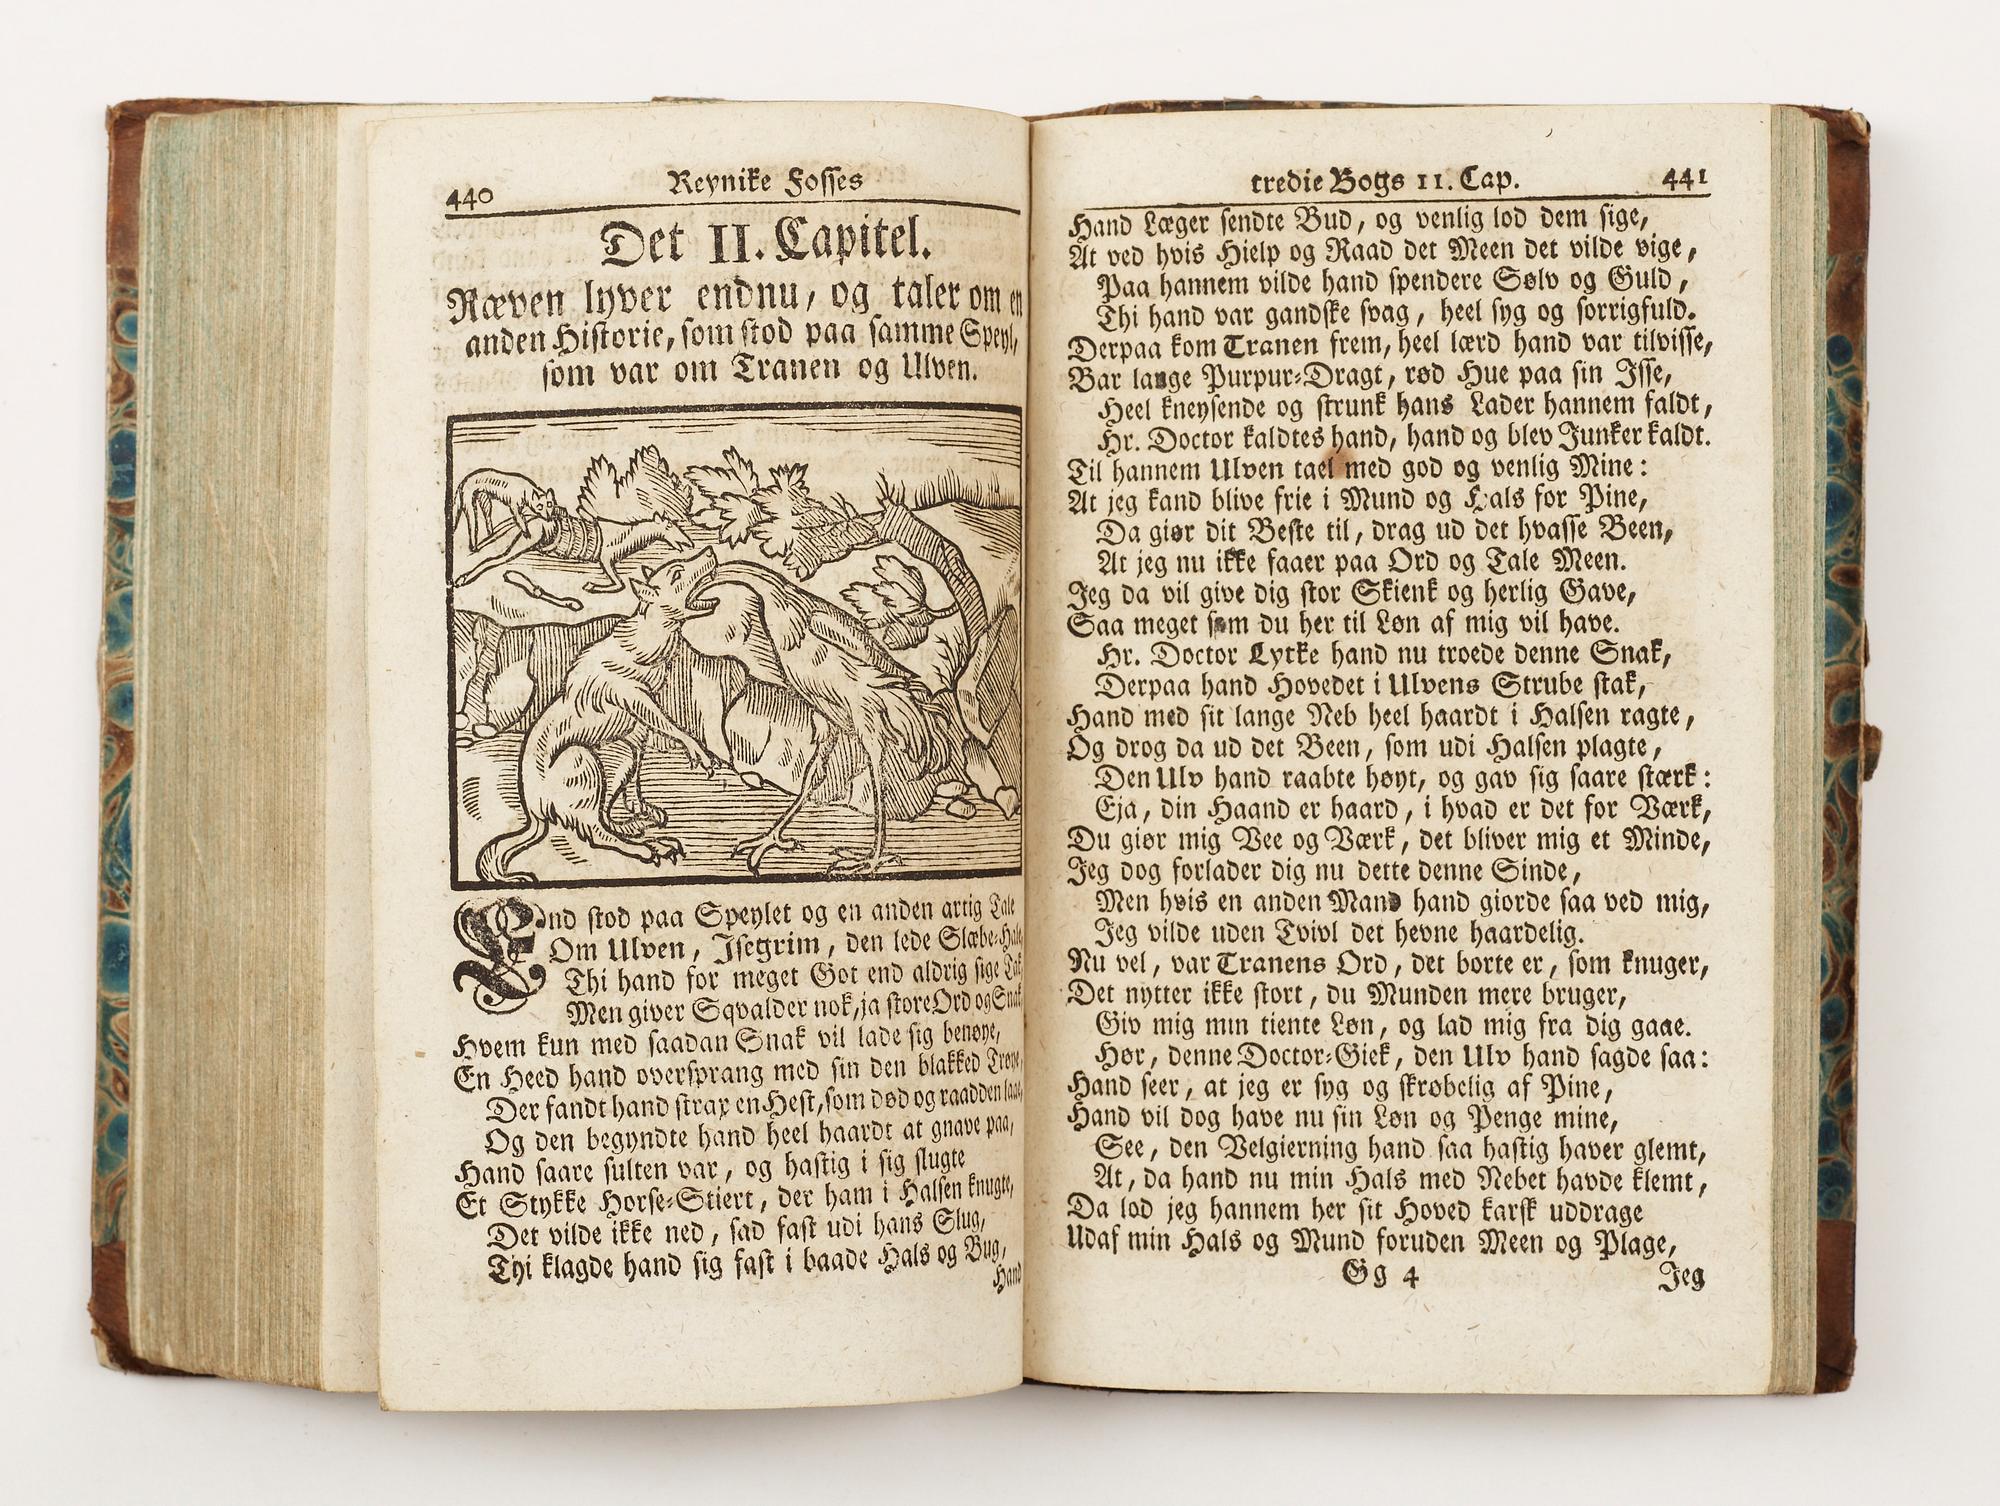 440
Reynike Fosses
Det II. Capitel.
Ræven lyver endnu, og taler om en
anden Historie, som stod paa samme Speyl,
som var om Tranen og Ulven.
End stod paa Speylet og en anden artig Tale
Om Ulven, Isegrim, den lede Slæbe-Hale,
Thi hand for meget Got end aldrig sige Tak
Men giver Sqvalder nok, ja store Ord og Snak,
Hvem kun med saadan Snak vil lade sig benøye,
En Heed hand oversprang med sin den blakked Trøye,
Der fandt hand strax en Hest, som død og raadden laae,
Og den begyndte hand heel haardt at gnave paa,
Hand saare sulten var, og hastig i sig slugte
Et Stykke Horse-Stiert, der ham i Halsen knugte,
Det vilde ikke ned, sad fast udi hans Slug,
Thi klagde hand sig fast i baade Hals og Bug,
Hand
tredie Bogs II. Cap.
441
Hand Læger sendte Bud, og venlig lod dem sige,
At ved hvis Hielp og Raad det Meen det vilde vige,
Paa hannem vilde hand spendere Sølv og Guld,
Thi hand var gandske svag, heel syg og sorrigfuld.
Derpaa kom Tranen frem, heel lærd hand var tilvisse,
Bar lange Purpur-Dragt, rød Hue paa sin Isse,
Heel kneysende og strunk hans Lader hannem faldt,
Hr. Doctor kaldtes hand, hand og blev Junker kaldt.
Til hannem Ulven tael med god og venlig Mine:
At jeg kand blive frie i Mund og Hals for Pine,
Da giør dit Beste til, drag ud det hvasse Been,
At jeg nu ikke faaer paa Ord og Tale Meen.
Jeg da vil give dig stor Skienk og herlig Gave,
Saa meget som du her til Løn af mig vil have.
Hr. Doctor Lytke hand nu troede denne Snak,
Derpaa hand Hovedet i Ulvens Strube stak,
Hand med sit lange Neb heel haardt i Halsen ragte,
Og drog da ud det Been, som udi Halsen plagte,
Den Ulv hand raabte høyt, og gav sig saare stærk:
Eja, din Haand er haard, i hvad er det for Værk,
Du giør mig Vee og Værk, det bliver mig et Minde,
Jeg dog forlader dig nu dette denne Sinde,
Men hvis en anden Mand hand giorde saa ved mig,
Jeg vilde uden Tvivl det hevne haardelig.
Nu vel, var Tranens Ord, det borte er, som knuger,
Det nytter ikke stort, du Munden mere bruger,
Giv mig min tiente Løn, og lad mig fra dig gaae.
Hør, denne Doctor-Giek, den Ulv hand sagde saa:
Hand seer, at jeg er syg og skrøbelig af Pine,
Hand vil dog have nu sin Løn og Penge mine,
See, den Velgierning hand saa hastig haver glemt,
At, da hand nu min Hals med Nebet havde klemt,
Da lod jeg hannem her sit Hoved karsk uddrage
Udaf min Hals og Mund foruden Meen og Plage,
Gg 4
Jeg